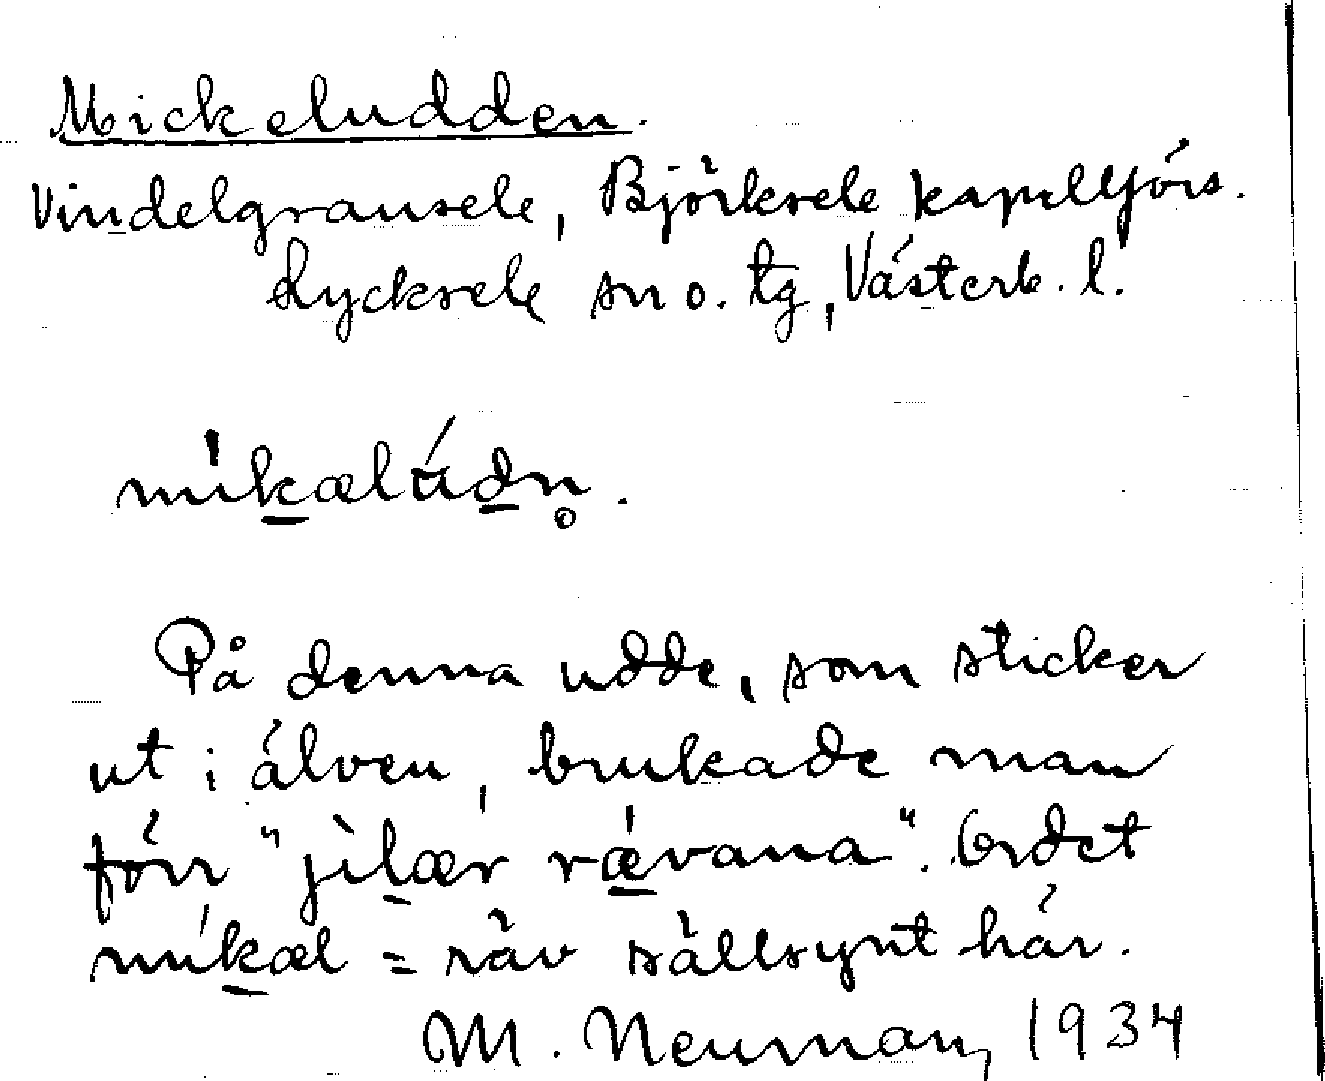 Mickeludden.
Vindelgransele, Björksele kapellförs.
Lycksele sn o. tg, Västerb. l.
mikælúdn̥.
På denna udde, som sticker
ut i älven, brukade man
förr "jìlær rǽvana". Ordet
míkæl = räv sällsynt här.
M. Neuman, 1934